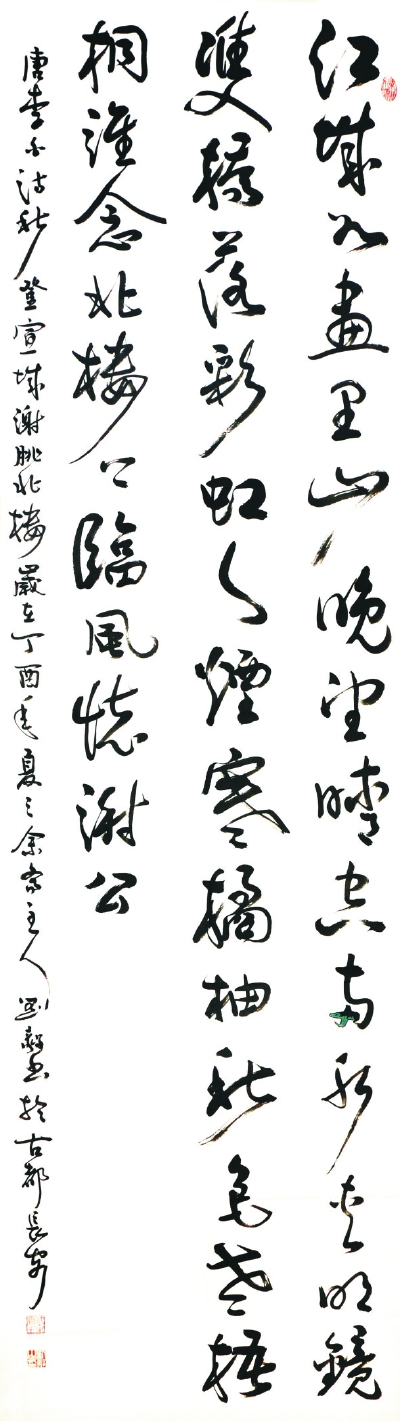 江城如畫里山晚望晴空兩水夾明鏡
雙橋落彩虹人煙寒橘柚秋色老梧
桐誰念北樓上臨風懷謝公
唐李白詩秋登宣城謝朓北樓歲在丁酉年夏之余齋主人劉毅書於古都長安